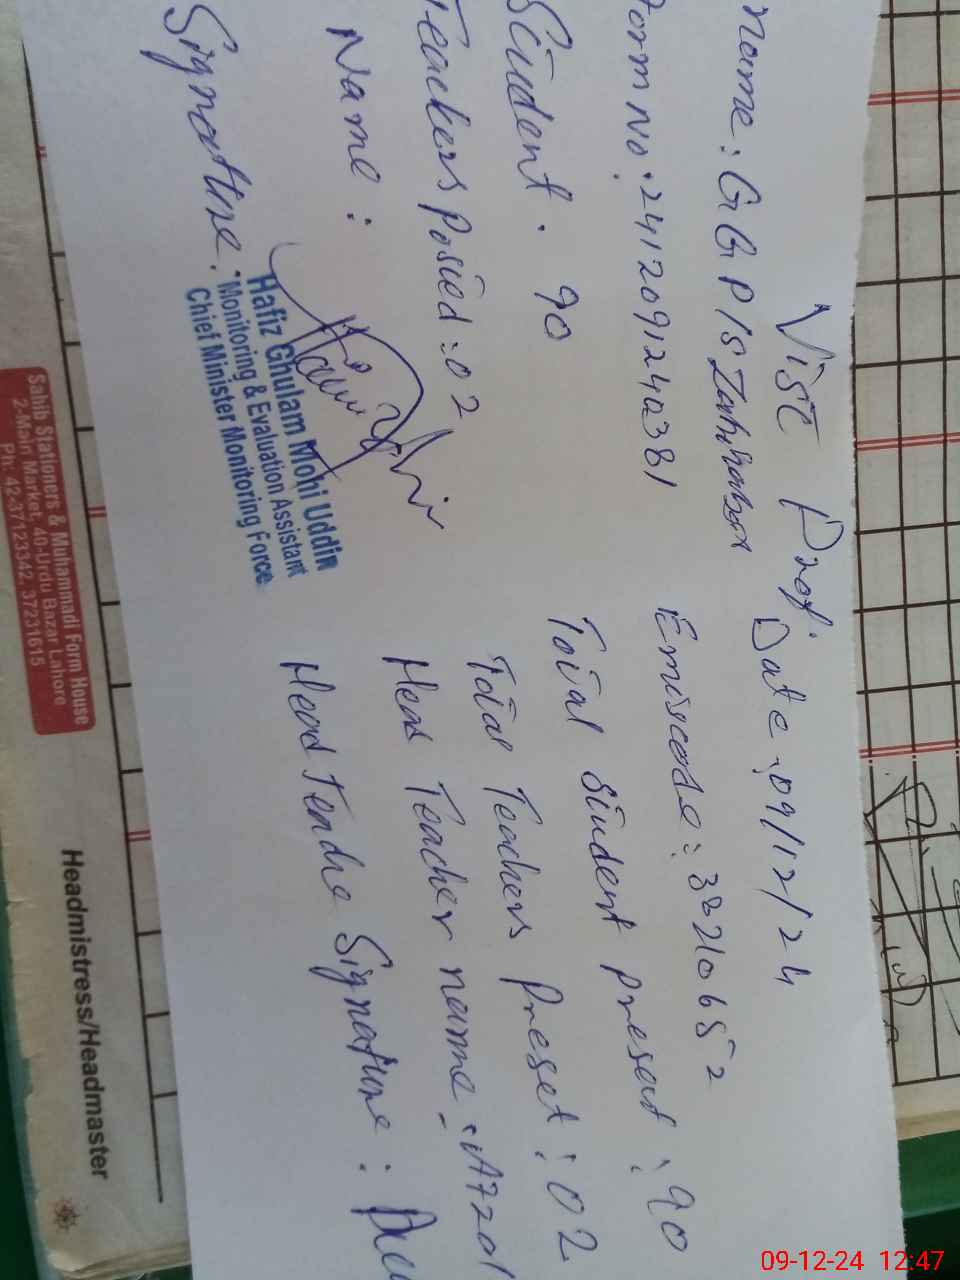 Visit Prof.
name: GGP/S Date: 09/12/24
Form No. 241209124038381 Emiscode: 38210652
Student. 90 Total Student present: 90
Teachers Posted: 02 Total Teachers Preset: 02
Name: Head Teacher name: Afzal
Signature. Head Teache Signature:
Hafiz Ghulam Mohi Uddin
Monitoring & Evaluation Assistant
Chief Minister Monitoring Force
Sahib Stationers & Muhammadi Form House
2-Main Market, 40-Urdu Bazar Lahore
Ph: 42-37123342, 37231615
Headmistress/Headmaster
09-12-24 12:47